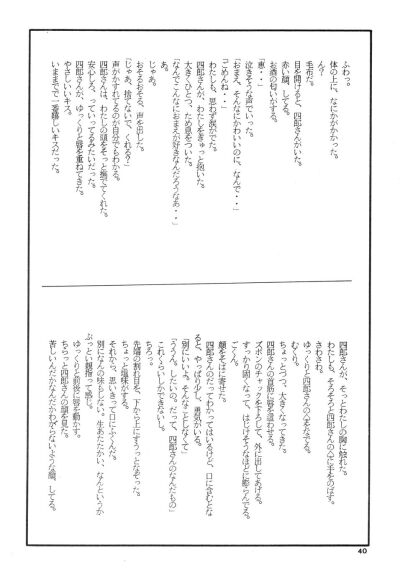 ふわっ。
体の上に、なにかがかかった。
ん?
毛布だ。
目を開けると、四郎さんがいた。
赤い顔、してる。
お酒の匂いがする。
「恵・・」
泣きそうな声でいった。
「おまえ、そんなにかわいいのに、なんで・・」
「ごめんね・・」
わたしも、思わず涙がでた。
四郎さんが、わたしをきゅっと抱いた。
大きくひとつ、ため息をついた。
「なんでこんなにおまえが好きなんだろうなあ・・」
あ。
じゃあ。
おそるおそる、声を出した。
「じゃあ、捨てないで、くれる?」
声がかすれてるのが自分でもわかる。
四郎さんは、わたしの頭をそっと撫でてくれた。
安心しろ、っていってるみたいだった。
四郎さんが、ゆっくりと唇を重ねてきた。
やさしいキス。
いままでで一番嬉しいキスだった。
四郎さんが、そっとわたしの胸に触れた。
わたしも、そろそろと四郎さんの○に手をのばす。
さわさわ。
ゆっくりと四郎さんの○をなでる。
むくり。
ちょっとづつ、大きくなってきた。
四郎さんの首筋に唇を這わせる。
ズボンのチャックを下ろして、外に出してあげる。
すっかり固くなって、はじけそうなほどに膨らんでる。
ごくん。
顔をそばに寄せた。
四郎さんのだってわかってはいるけど、口に含むとな
ると、やっぱり少し、勇気がいる。
「別にいいよ。そんなことしなくて」
「ううん。したいの。だって、四郎さんのなんだもの」
これくらいしかできないし。
ちろっ。
先端の割れ目を、下から上にすうっとなぞった。
ちょっと塩味がする。
それから、思いきって口にふくんだ。
別になんの味もしない。生あたたかい、なんというか
ぶっとい親指って感じ。
ゆっくりと前後に唇を動かす。
ちらっと四郎さんの顔を見た。
苦しいんだかなんだかわからないような顔、してる。
40